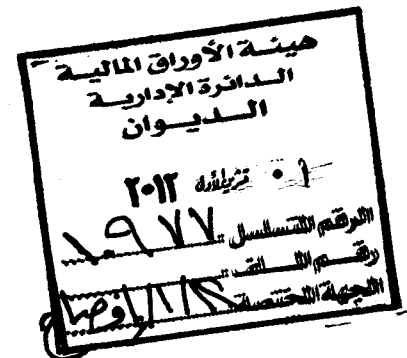 هيئة الأوراق المالية
الدائرة الإدارية
الديوان
٠١ تشرين الأول ٢٠١٢
الرقم المتسلسل ١٩٧٧
رقم الملف
الجهة المختصة افصاح